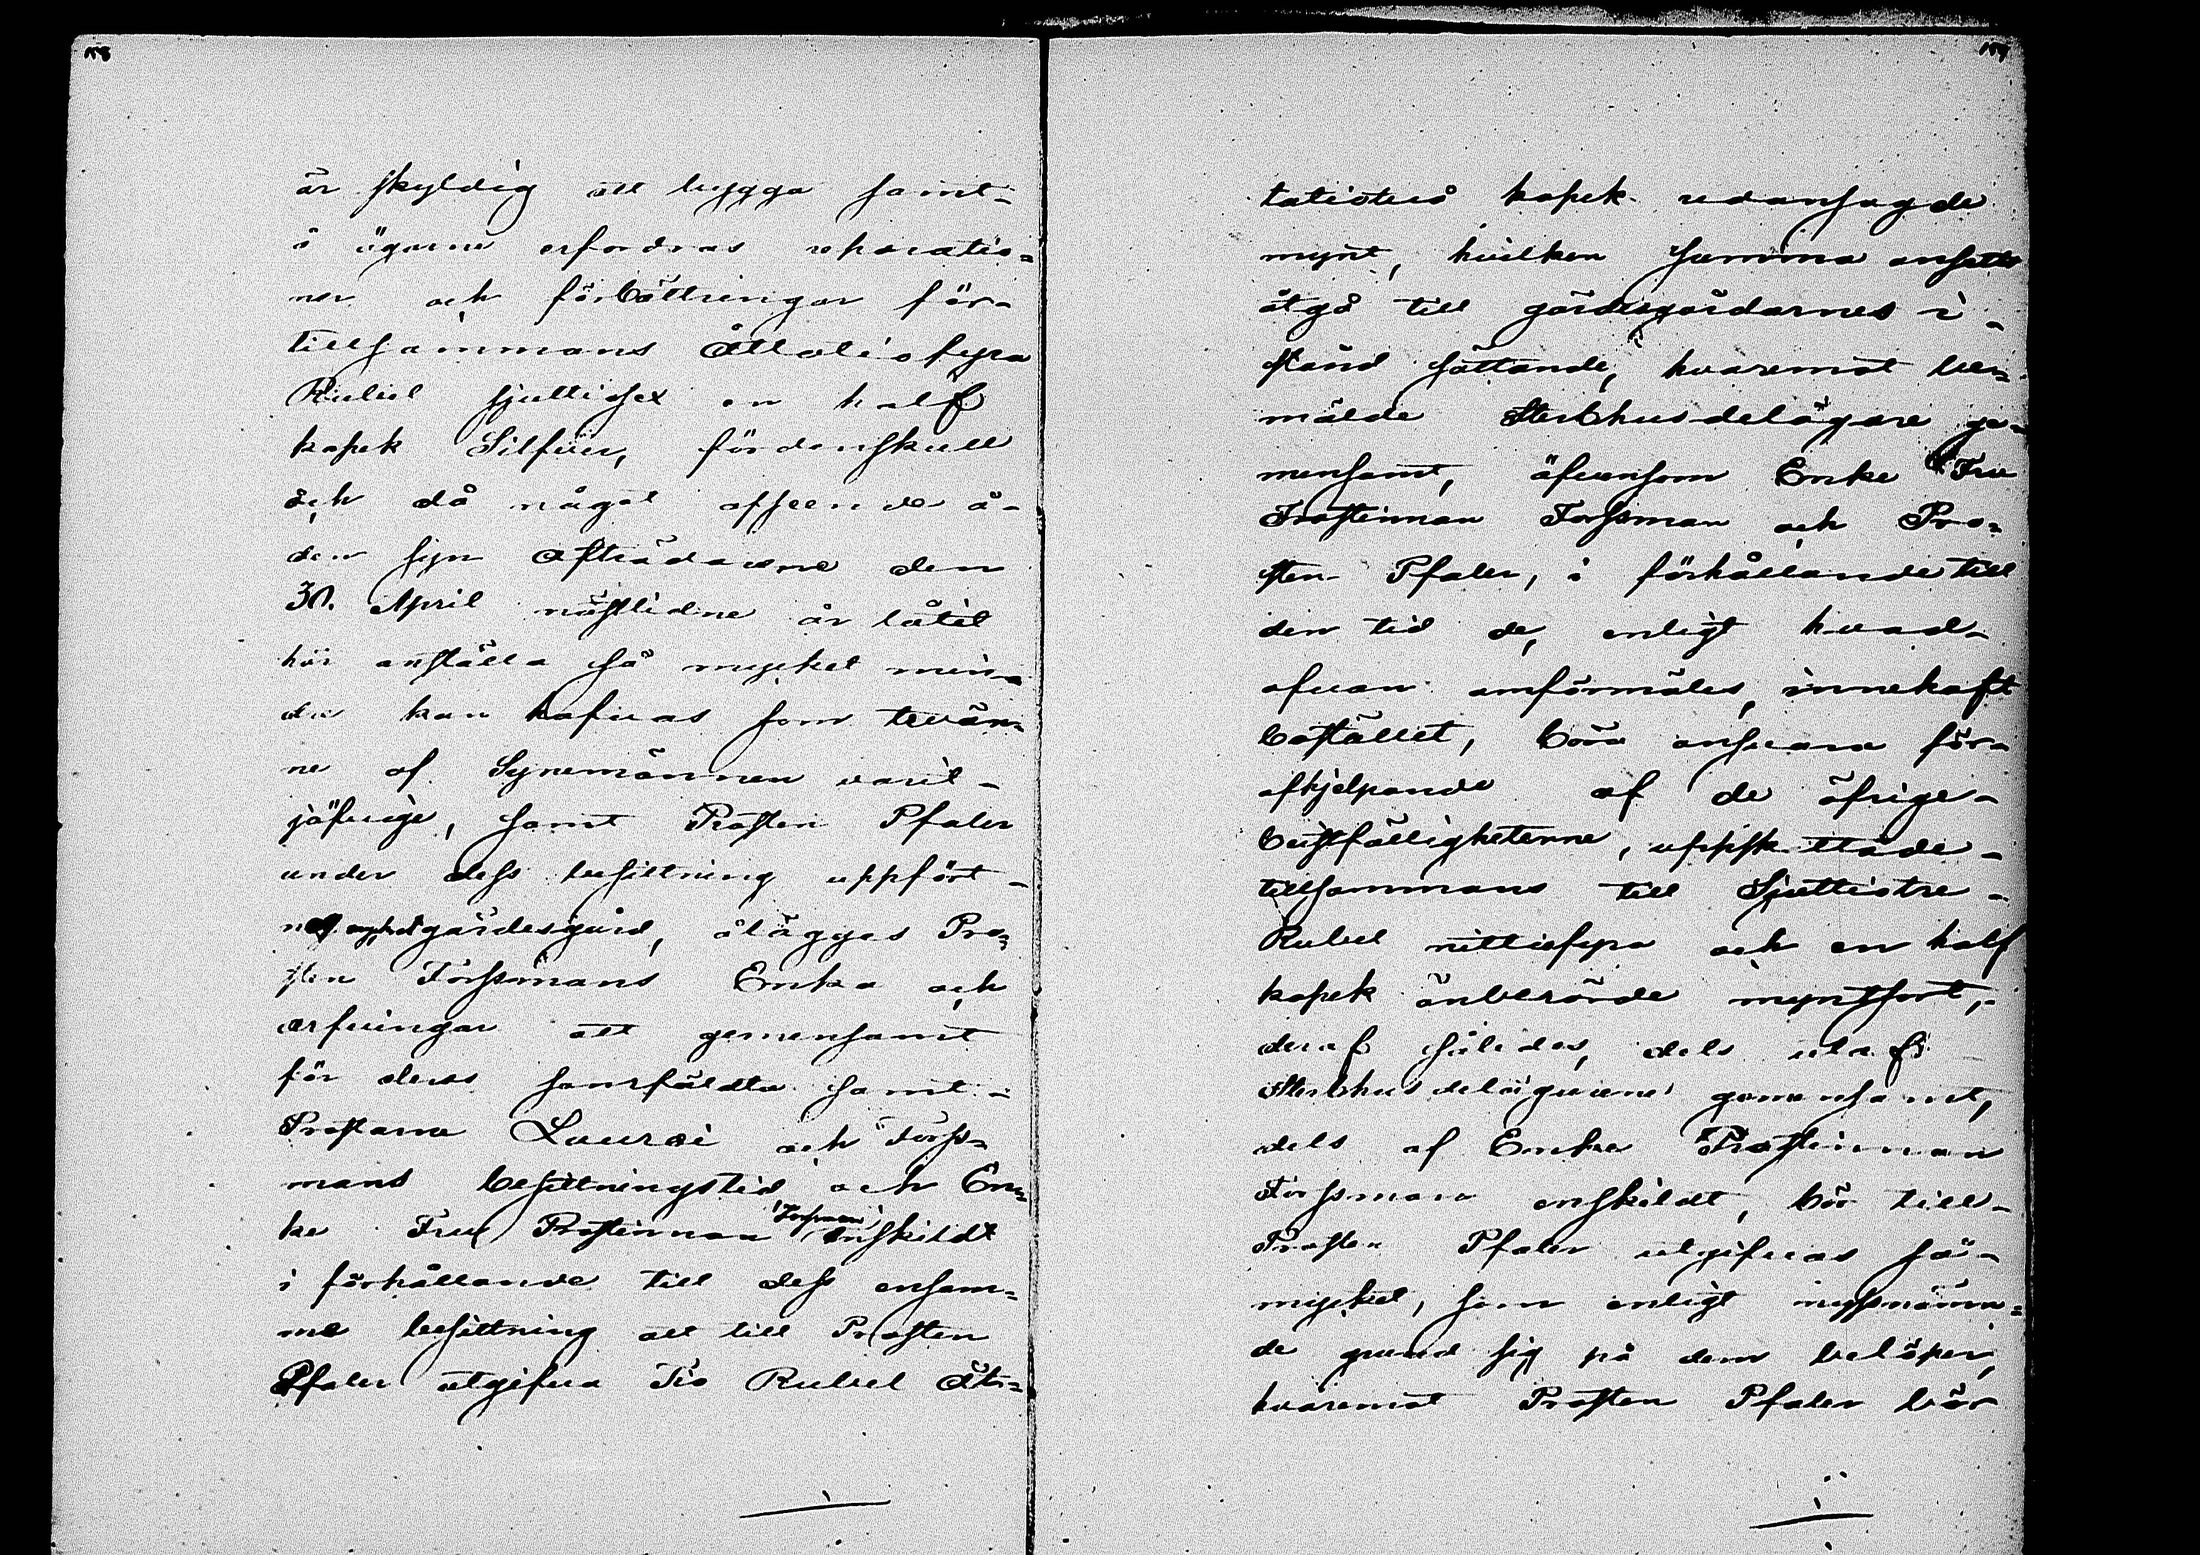 158
är skyldig att bygga samt-
å ägorne erfordras reparatio=
ner och förbättringar för-
tillsammans Åttatiofyra
Rubel sjuttiosex en half
kopek Silfver, fördenskull
och då något afseende å-
den syn Afträdarne den
30. April nästlidne år låtit
här anställa så mycket min=
dre kan hafvas som tvän=
ne af Synemännen varit-
jäfvige, samt Prosten Pfaler
under dess besittning uppfört-
gärdesgård, ålägges Pro=
sten Forssmans Enka och
arfvingar att gemensamt
för deras samfäldta samt-
Prostarne Lauræi och Forss=
mans besittningstid och En=
ke Fru Prostinnan Forssman enskildt
i förhållande till dess ensam=
ma besittning att till Prosten
Pfaler utgifva Tio Rubel Åt=
159
tatiotvå kopek redansagde
mynt, hvilken summa ansetts
åtgå till gärdesgårdarnes i-
stånd sättande, hvaremot be=
mälde Sterbhusdelägare ge=
mensamt, äfvensom Enke Fru
Prostinnan Forssman och Pro=
sten Pfaler, i förhållande till
den tid de, enligt hvad-
ofvan omförmäles, innehaft
bostället, böra ansvara för-
afhjelpande af de öfrige-
bristfälligheterne, uppskattade-
tillsammans till Sjuttiotre-
Rubel nittiofyra och en half
kopek önberörde myntsort,-
deraf således, dels utaf
Sterbhusdelägarne gemensamt,
dels af Enke Prostinnan
Forssman enskildt, bör till-
Prosten Pfaler utgifvas så-
mycket, som enligt nyssnämn=
de grund sig på dem belöper,
hvaremot Prosten Pfaler bör